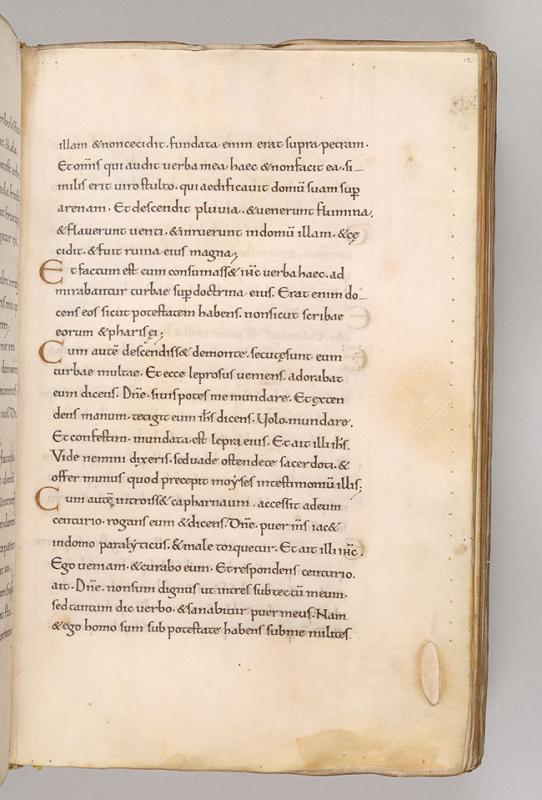 illam &noncecidit. fundata enim erat supra petram.
Et om̅s qui audit uerba mea haec &nonfacit ea. si–
milis erit uiro stulto. qui aedificauit domū suam sup̅
arenam. Et descendit pluuia. &uenerunt flumina,
&flauerunt uenti. &inruerunt indomū illam. &cę
cidit. &fuit ruina eius magna;
Et factum est cum consumass& ih̅c uerba haec. ad
mirabantur turbae sup̅ doctrina eius. Erat enim do–
cens eos sicut potestatem habens. nonsicut scribae
eorum &pharisęi;
Cum autē descendiss& demonte. secutęsunt eum
turbae multae. Et ecce leprosus ueniens. adorabat
eum dicens. Dn̅e. siuispotes me mundare. Et exten
dens manum. tetigit eum ih̅s dicens. Uolo. mundare.
Et confestim. mundata est lepra eius. Et ait illi ih̅s.
Vide nemini dixeris. seduade ostendete sacerdoti. &
offer munus quod precepit moyses intestimoniū illis;
Cum autē introiss& capharnaum. accessit adeum
centurio. rogans eum &dicens. Dn̅e. puer m̅s iac&
indomo paralyticus. &male torquetur. Et ait illi ih̅c.
Ego ueniam. &curabo eum. Et respondens centurio.
ait. Dn̅e. nonsum dignus ut intres subtectū meum.
sed tantum dic uerbo. &sanabitur puer meus. Nam
&ego homo sum sub potestate habens subme milites.